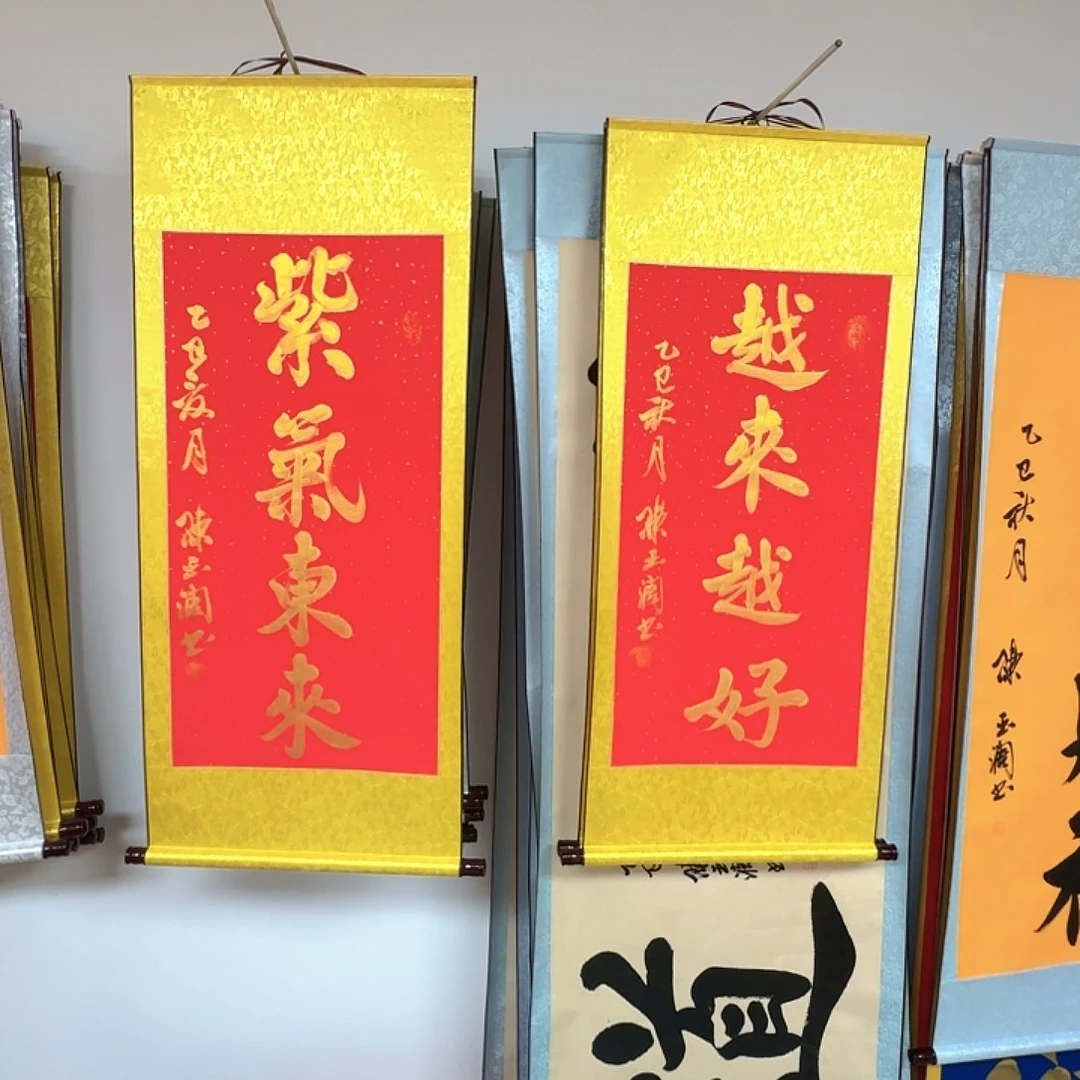 紫氣東來
乙巳夏月 陳玉潤书
越來越好
乙巳秋月 陳玉潤书
乙巳秋月 陳玉潤书